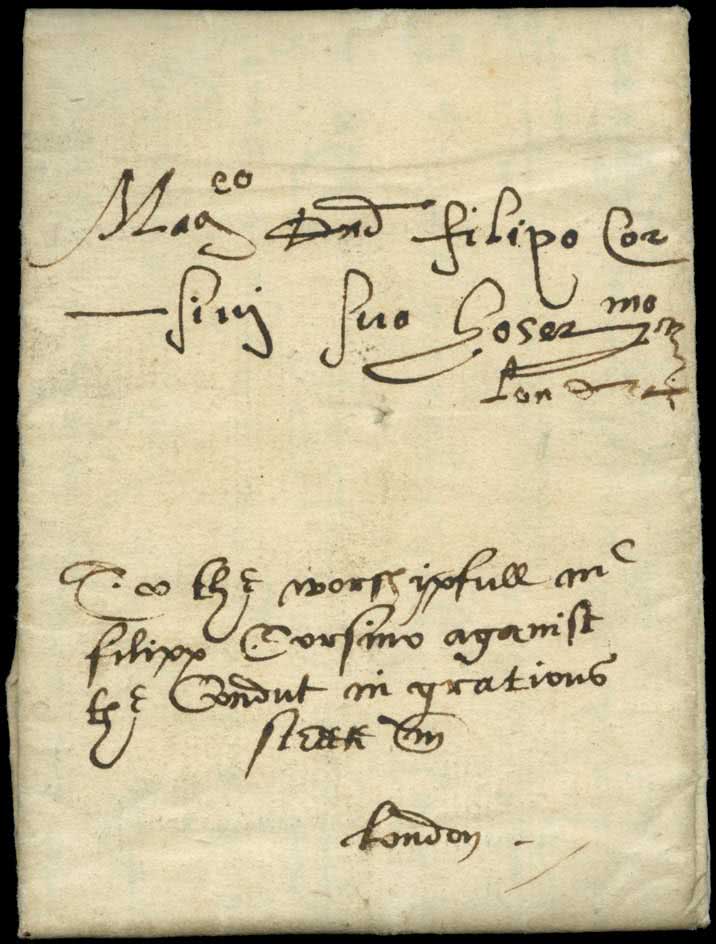 Mag^co D^no filipo Cor
sinj suo hoser^mo
Londra
To the worshipfull m^r
filipp Corsino aganist
the Condut in gratious
streete in
London